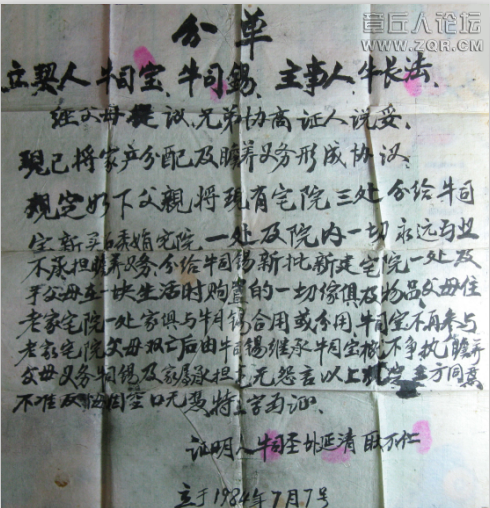 章丘人论坛
WWW.ZQR.COM
分单
立契人牛司宝、牛司锡、主事人、牛长法、
经父母提议、兄弟协商证人说妥、
现已将家产分配及赡养义务形成协议、
规定如下父親将现有宅院三处分给牛司
宝新买宅院一处及院内一切永远与且
不承担赡养义务分给牛司锡新批新建宅院一处及
于父母在一块生活时购置的一切傢俱及物品父母住
老家宅院一处家俱与牛司锡合用或分用牛司宝不再参与
老家宅院父母双亡后由牛司锡继承牛司宝不争执赡养
父母义务牛司锡及家属承担无怨言以上规定方同意
不准反悔空口无凭特立字为证、
证明人牛司圣延清
立于1984年7月7号